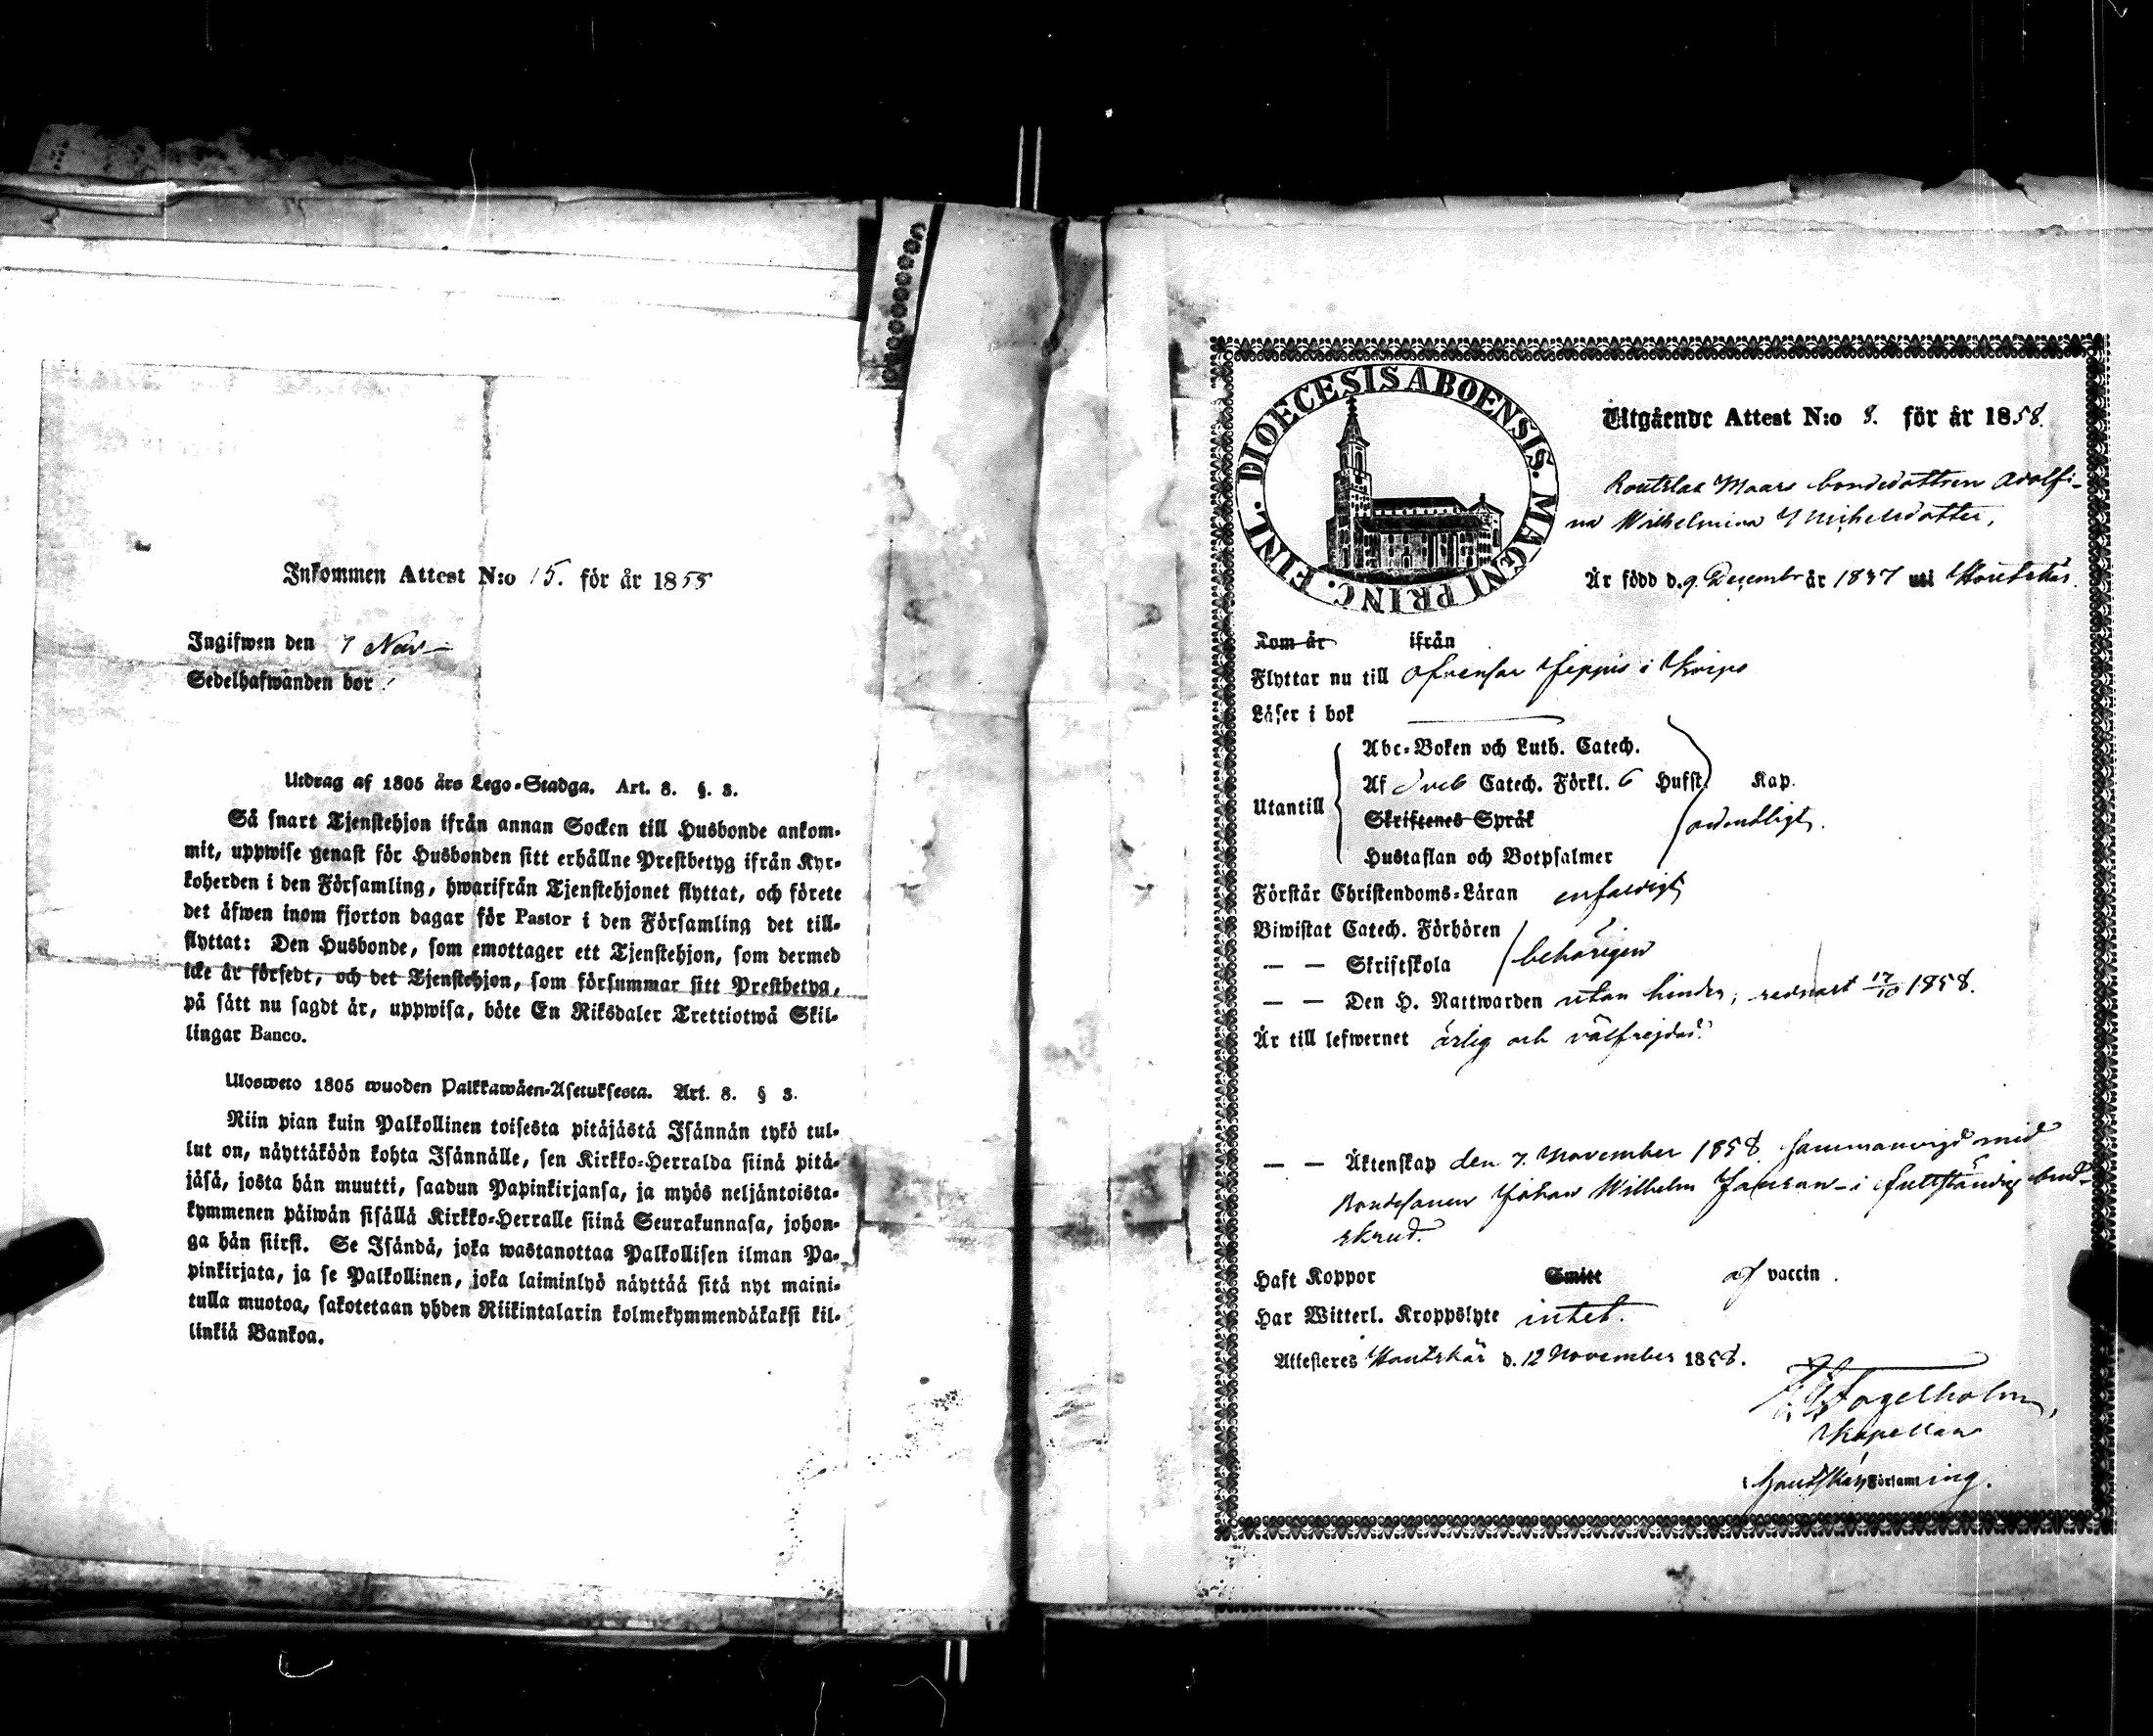 Inkommen Attest N:o 15. för år 1855
Ingifwen den 7 Nov
Sedelhafwanden bor
Utdrag af 1805 års Lego-Stadga. Art. 8. §. 3.
Så snart Tjenstehjon ifrån annan Socken till Husbonde ankom-
mit, uppwise genast för Husbonden sitt erhållne Prestbetyg ifrån Kyr-
koherden i den Församling, hwarifrån Tjenstehjonet flyttat, och förete
det äfwen inom fjorton dagar för Pastor i den Församling det till-
flyttat: Den Husbonde, som emottager ett Tjenstehjon, som dermed
icke är försedt, och det Tjenstehjon, som försummar sitt Prestbetyg,
på sätt nu sagdt är, uppwisa, böte En Riksdaler Trettiotwå Skil-
lingar Banco.
Ulosweto 1805 wuoden Palkkawäen-Asetuksesta. Art. 8. § 3.
Niin pian kuin Palkollinen toisesta pitäjästä Isännän tykö tul-
lut on, näyttäköön kohta Isännälle, sen Kirkko-Herralda siinä pitä-
jäsä, josta hän muutti, saadun Papinkirjansa, ja myös neljäntoista-
kymmenen päiwän sisällä Kirkko-Herralle siinä Seurakunnasa, johon-
ga hän siirsi. Se Isändä, joka wastanottaa Palkollisen ilman Pa-
pinkirjata, ja se Palkollinen, joka laiminlyö näyttää sitä nyt maini-
tulla muotoa, sakotetaan yhden Riikintalarin kolmekymmendäkaksi kil-
linkiä Bankoa.
FINL. DIOECESIS ABOENSIS. MAGNI PRINC.
Utgående Attest N:o 8. för år 1858.
Maars bondedottren Adolfi-
na Wilhelmina Michelsdotter,
Är född d. 9 Decembr år 1837 uti Houtskär.
Kom år ifrån
Flyttar nu till i Korpo
Läser i bok
Abc-Boken och Luth. Catech.
Af Sveb Catech. Förkl. 6 Hufst. Kap.
Utantill
Skriftenes Språk
ordentligt.
Hustaflan och Botpsalmer
Förstår Christendoms-Läran enfaldigt
Biwistat Catech. Förhören
— — Skriftskola behörigen
— — Den H. Nattwarden utan hinder, sednast 17/10 1858.
Är till lefwernet ärlig och välfrejdad.
— — Äktenskap den 7. November 1858 sammanvigd med
Bondesonen Johan Wilhelm Jansson i fullständig brud-
skrud.
Haft Koppor Smitt af vaccin.
Har Witterl. Kroppslyte intet.
Attesteres Houtskär d. 12 November 1858.
Fagelholm,
Kapellan
i Houtskärs Församling.